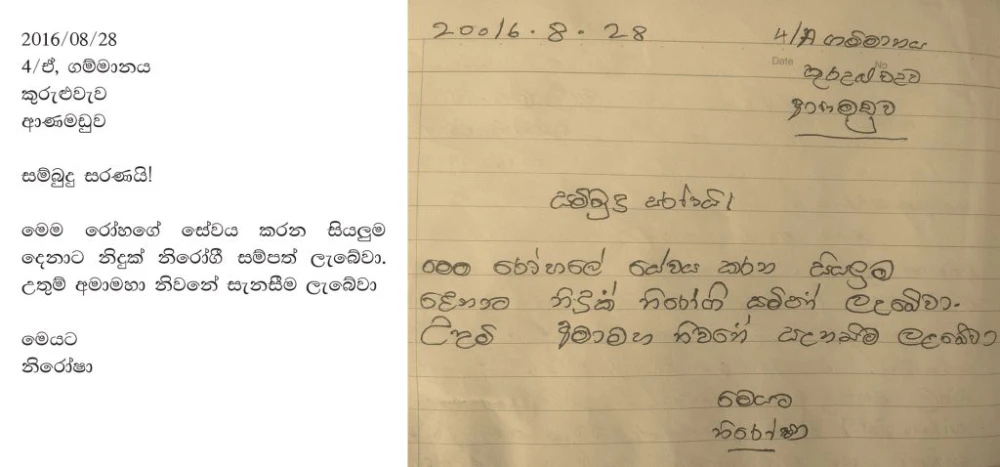 2016/08/28
4/ඒ, ගම්මානය
කුරුළුවැව
ආණමඩුව
සම්බුදු සරණයි!
මෙම රෝහගේ සේවය කරන සියලුම
දෙනාට නිදුක් නිරෝගී සම්පත් ලැබේවා.
උතුම් අමාමහා නිවනේ සැනසීම ලැබේවා
මෙයට
නිරෝෂා
20016.8.28
4/A ගම්මානය
Date No
කුරුළුවැව
ආණමඩුව
සම්බුදු සරණයි!
මෙම රෝහලේ සේවය කරන සියලුම
දෙනාට නිදුක් නිරෝගි සම්පත් ලැබේවා.
උතුම් අමාමහ නිවනේ සැනසීම ලැබේවා
මෙයට
නිරෝෂා